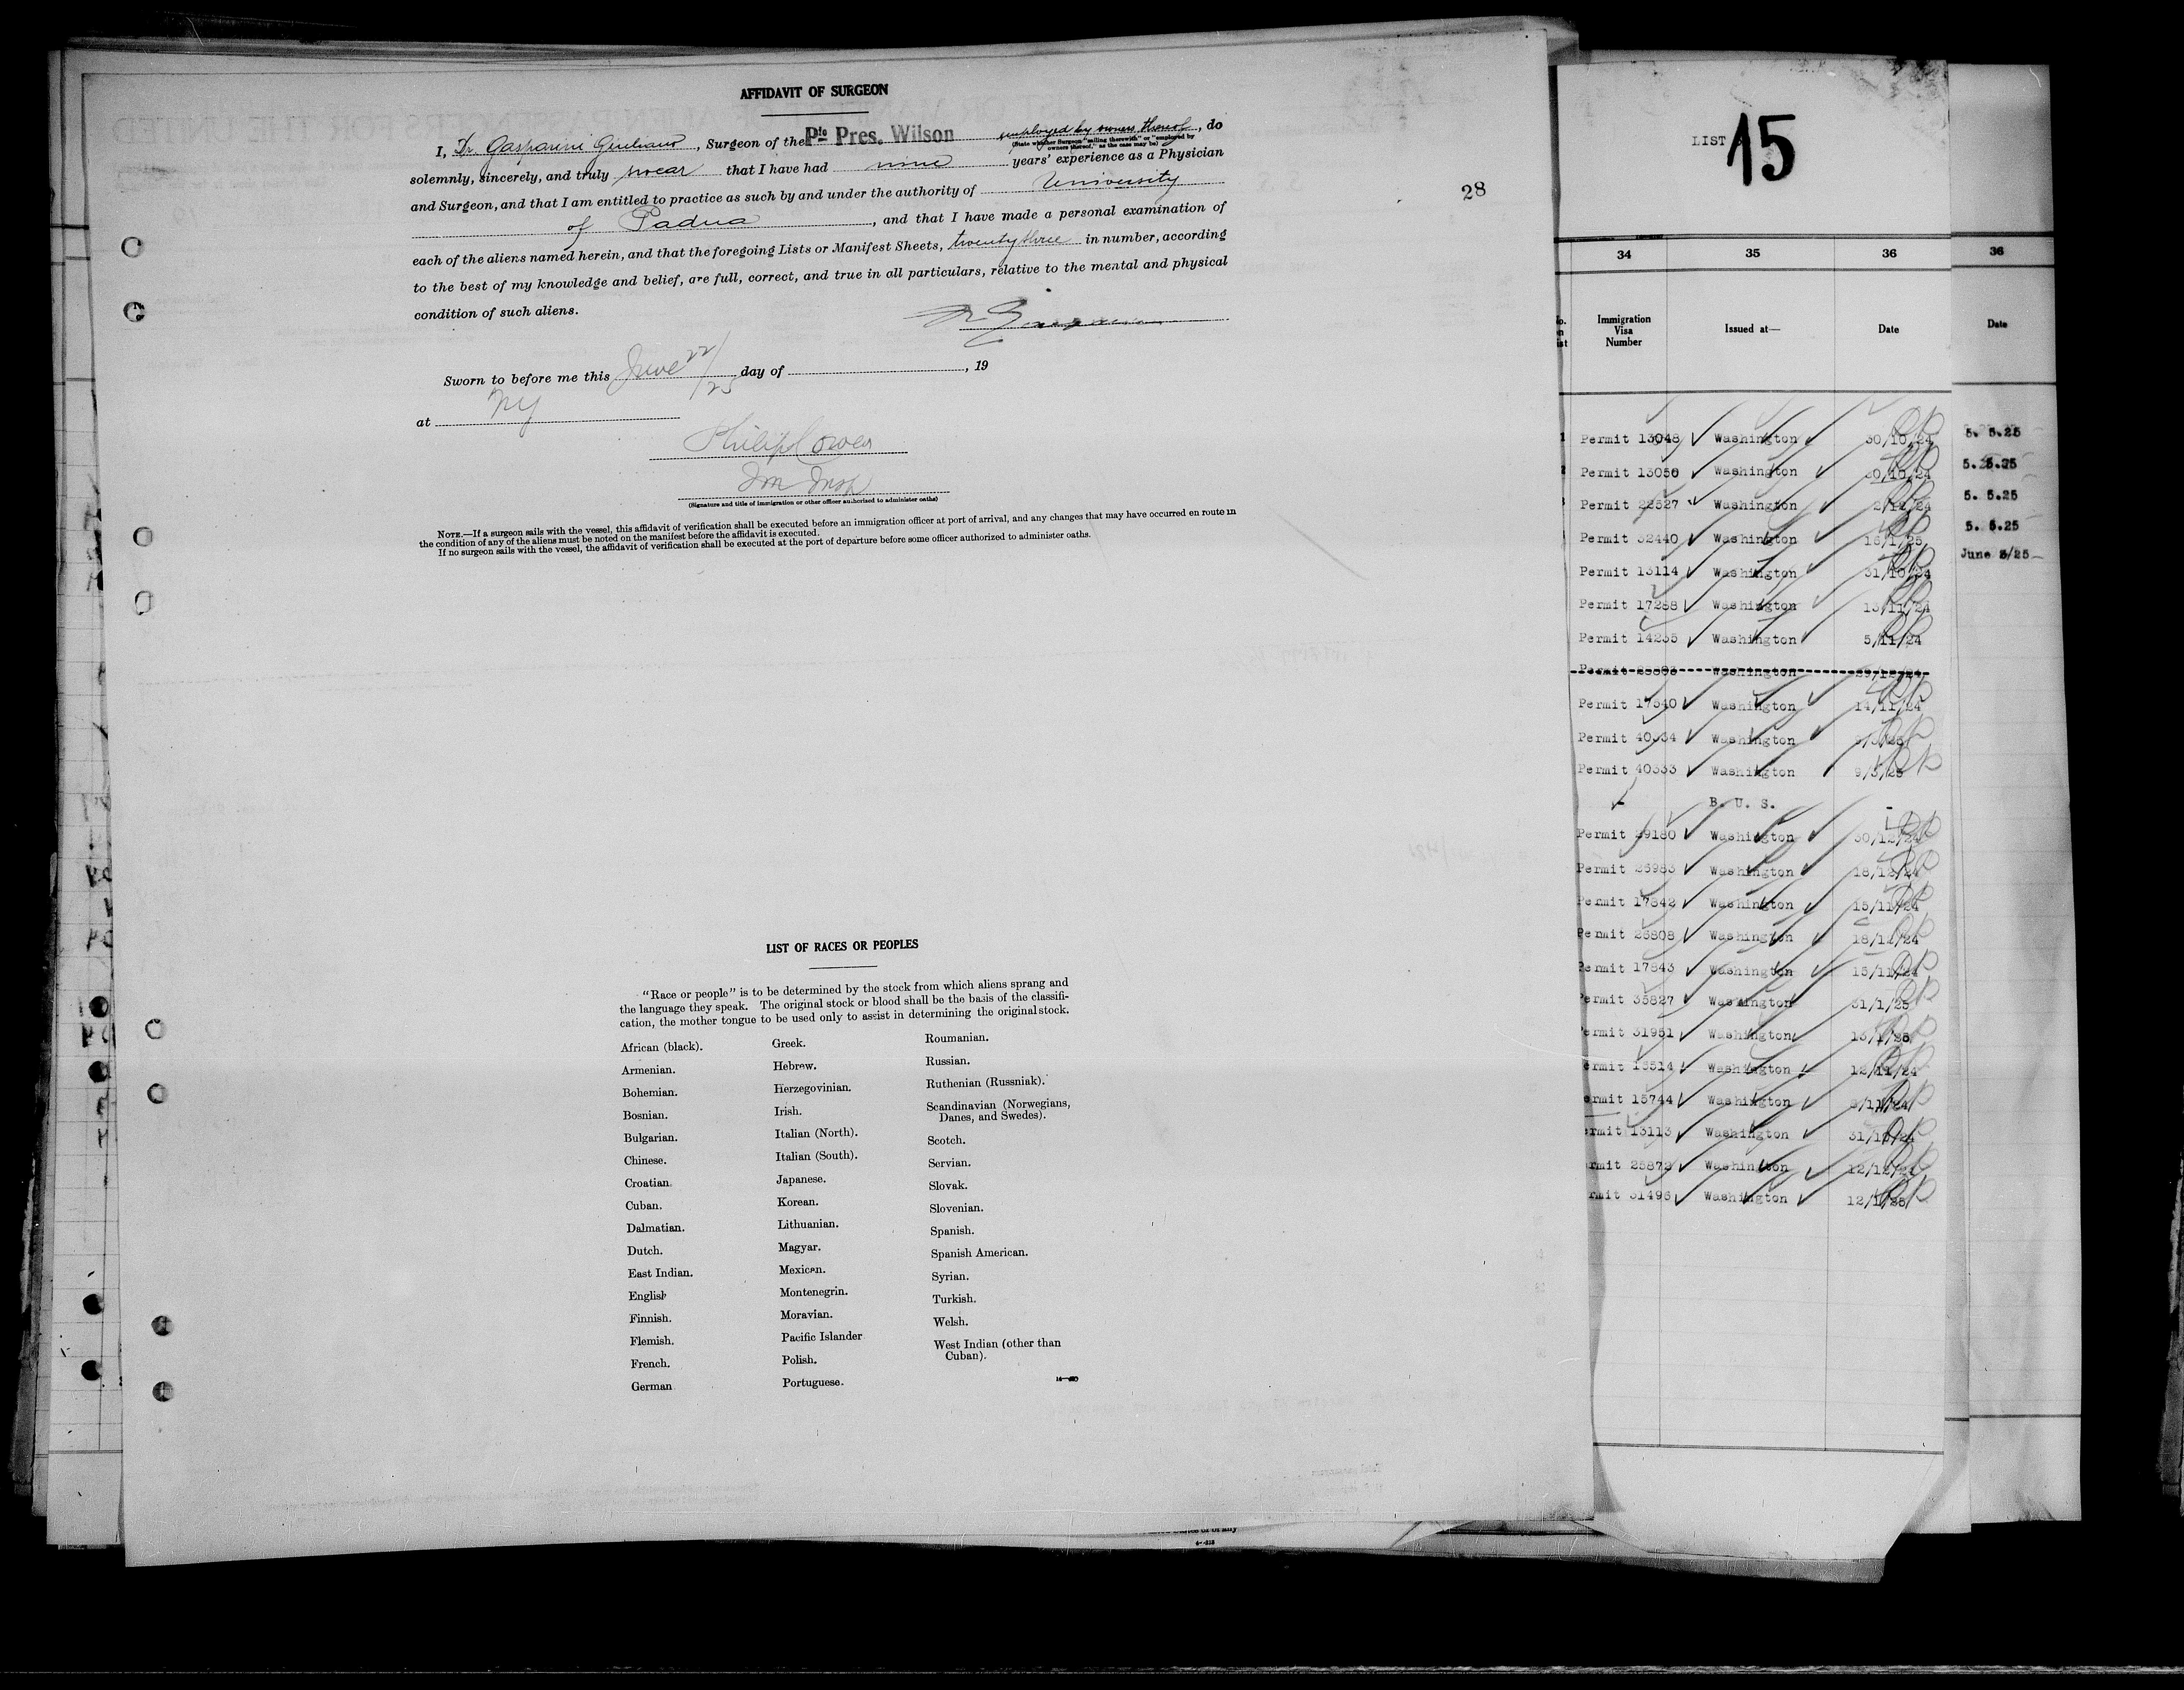 AFFIDAVIT OF SURGEON
I, Dr. Gasparini Giuliano, Surgeon of the Pfo Pres. Wilson employed by owners thereof, do
(State whether Surgeon "sailing therewith" or "employed by
owners thereof," as the case may be)
solemnly, sincerely, and truly swear that I have had nine years' experience as a Physician
and Surgeon, and that I am entitled to practice as such by and under the authority of University
of Padua, and that I have made a personal examination of
each of the aliens named herein, and that the foregoing Lists or Manifest Sheets, twenty three in number, according
to the best of my knowledge and belief, are full, correct, and true in all particulars, relative to the mental and physical
condition of such aliens.
Sworn to before me this June 22/25 day of , 19
at NY
Philip Cowen
Im Insp
(Signature and title of immigration or other officer authorized to administer oaths)
NOTE.—If a surgeon sails with the vessel, this affidavit of verification shall be executed before an immigration officer at port of arrival, and any changes that may have occurred en route in
the condition of any of the aliens must be noted on the manifest before the affidavit is executed.
If no surgeon sails with the vessel, the affidavit of verification shall be executed at the port of departure before some officer authorized to administer oaths.
28
LIST OF RACES OR PEOPLES
"Race or people" is to be determined by the stock from which aliens sprang and
the language they speak. The original stock or blood shall be the basis of the classifi-
cation, the mother tongue to be used only to assist in determining the original stock.
African (black).
Armenian.
Bohemian.
Bosnian.
Bulgarian.
Chinese.
Croatian
Cuban.
Dalmatian.
Dutch.
East Indian.
English
Finnish.
Flemish.
French.
German
Greek.
Hebrew.
Herzegovinian.
Irish.
Italian (North).
Italian (South).
Japanese.
Korean.
Lithuanian.
Magyar.
Mexican.
Montenegrin.
Moravian.
Pacific Islander
Polish.
Portuguese.
Roumanian.
Russian.
Ruthenian (Russniak).
Scandinavian (Norwegians,
Danes, and Swedes).
Scotch.
Servian.
Slovak.
Slovenian.
Spanish.
Spanish American.
Syrian.
Turkish.
Welsh.
West Indian (other than
Cuban).
LIST 15
34 35 36
Immigration
Visa
Number
Issued at—
Date
Permit 13048 Washington 30/10/24
Permit 13050 Washington 30/10/24
Permit 22527 Washington 2/12/24
Permit 32440 Washington 16/1/25
Permit 13114 Washington 31/10/24
Permit 17288 Washington 13/11/24
Permit 14235 Washington 5/11/24
Permit Washington
Permit 17540 Washington 14/11/24
Permit 40334 Washington
Permit 40333 Washington 9/3/25
- B. U. S. -
Permit 29180 Washington 30/12/24
Permit 26983 Washington 18/12/24
Permit 17542 Washington 15/11/24
Permit 26808 Washington 18/12/24
Permit 17543 Washington 15/11/24
Permit 35827 Washington 31/1/25
ermit 31951 Washington 13/1/25
ermit 16514 Washington 12/11/24
ermit 15744 Washington
ermit 13113 Washington 31/10/24
rmit 25872 Washington 12/12/24
rmit 31496 Washington 12/1/25
36
Date
5. 5.25
5. 5.25
5. 5.25
5. 5.25
June 5/25